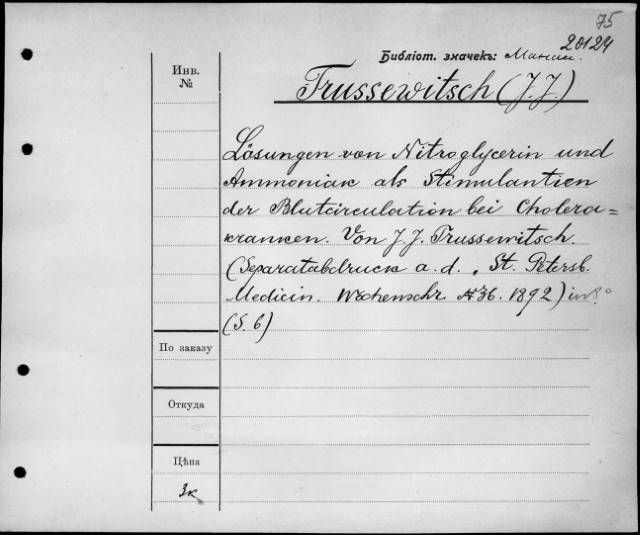 75
20124
Библіот. значекъ:
Инв.
№
Trussewitsch (J. J.)
Lösungen von Nitroglycerin und
Ammoniak als Stimulantien
der Blutcirculation bei Cholera=
kranken. Von J. J. Trussewitsch.
(Separatabdruck a. d. „St. Petersb.
Medicin. Wochenschr. № 36. 1892) in 8°
(S. 6)
По заказу
Откуда
Цѣна
3к